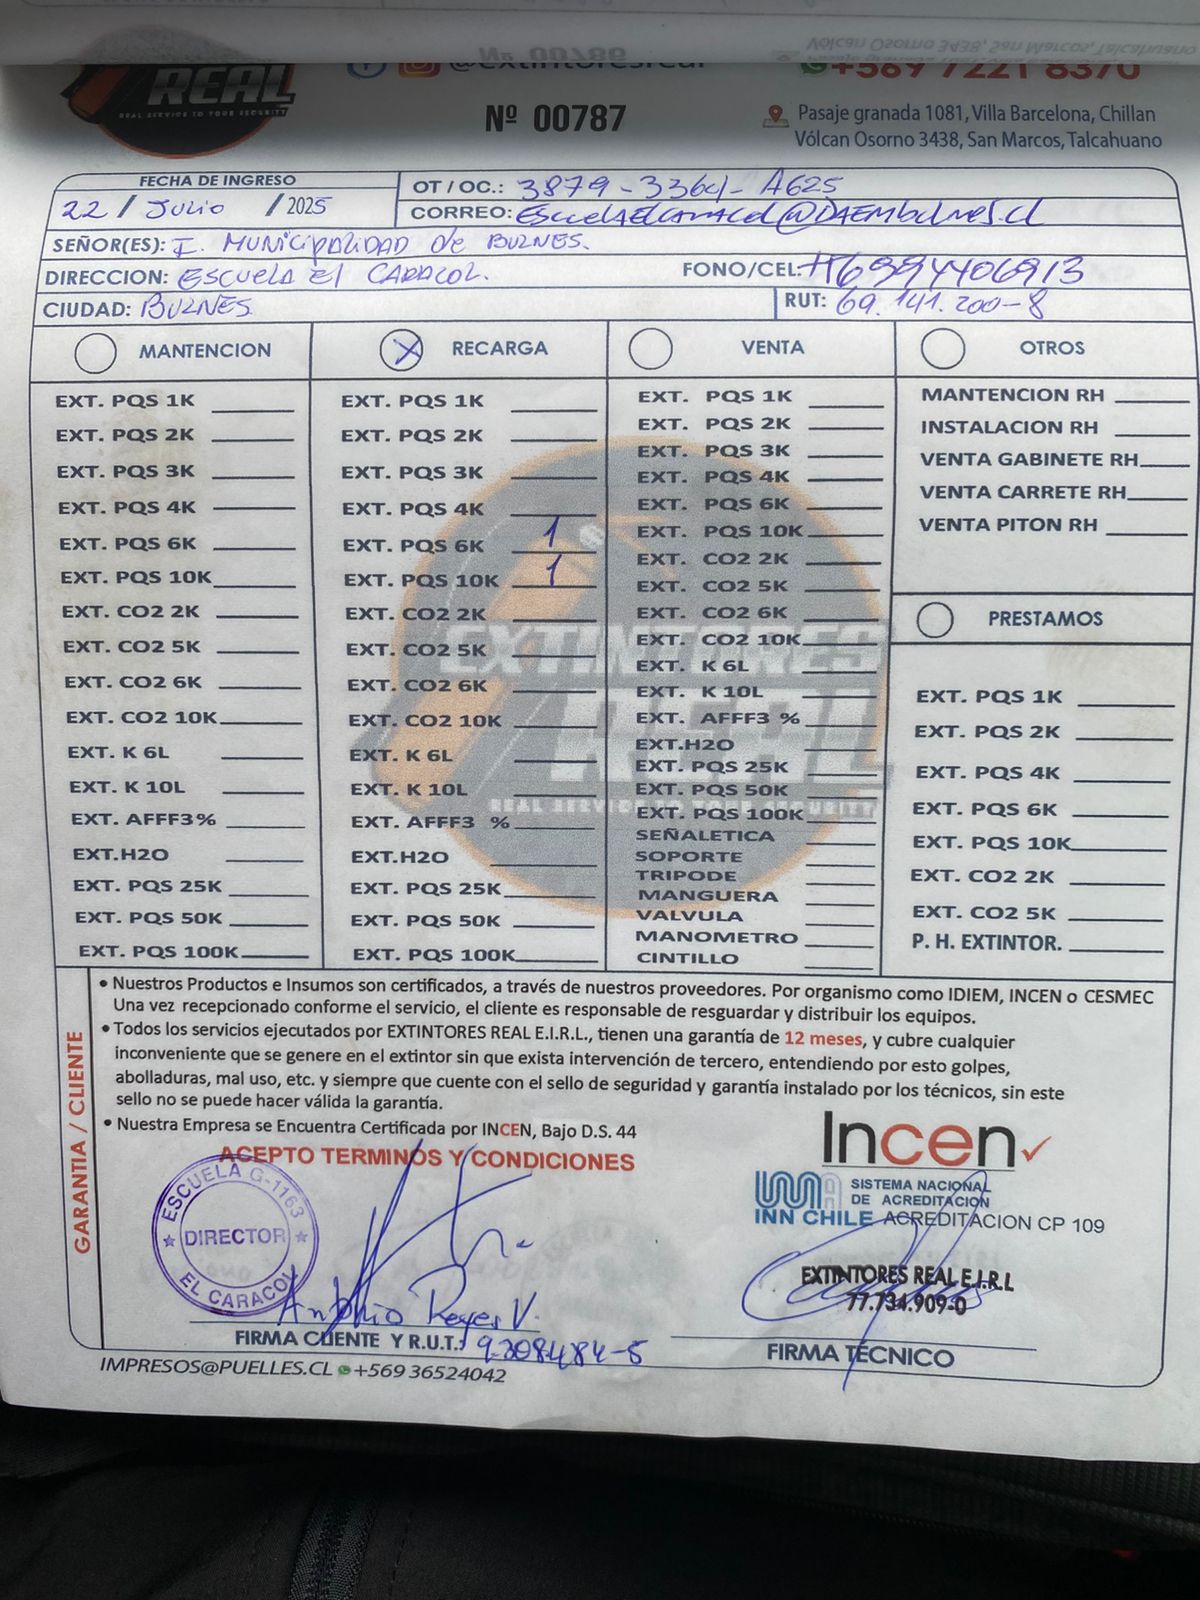 REAL
REAL SERVICE TO YOUR SECURITY
@extintoresreal
+569 7221 8370
Nº 00787
Pasaje granada 1081, Villa Barcelona, Chillan
Vólcan Osorno 3438, San Marcos, Talcahuano
FECHA DE INGRESO
22 / Julio / 2025
OT / OC.: 3879-336-A625
CORREO: EscuelaElCaracol@DAEMbulnes.cl
SEÑOR(ES): I. MUNICIPALIDAD de BULNES.
DIRECCION: ESCUELA El CARACOL.
FONO/CEL: +56994406913
CIUDAD: BULNES
RUT: 69.141.200-8
MANTENCION
EXT. PQS 1K
EXT. PQS 2K
EXT. PQS 3K
EXT. PQS 4K
EXT. PQS 6K
EXT. PQS 10K
EXT. CO2 2K
EXT. CO2 5K
EXT. CO2 6K
EXT. CO2 10K
EXT. K 6L
EXT. K 10L
EXT. AFFF3%
EXT.H2O
EXT. PQS 25K
EXT. PQS 50K
EXT. PQS 100K
X RECARGA
EXT. PQS 1K
EXT. PQS 2K
EXT. PQS 3K
EXT. PQS 4K
EXT. PQS 6K 1
EXT. PQS 10K 1
EXT. CO2 2K
EXT. CO2 5K
EXT. CO2 6K
EXT. CO2 10K
EXT. K 6L
EXT. K 10L
EXT. AFFF3 %
EXT.H2O
EXT. PQS 25K
EXT. PQS 50K
EXT. PQS 100K
VENTA
EXT. PQS 1K
EXT. PQS 2K
EXT. PQS 3K
EXT. PQS 4K
EXT. PQS 6K
EXT. PQS 10K
EXT. CO2 2K
EXT. CO2 5K
EXT. CO2 6K
EXT. CO2 10K
EXT. K 6L
EXT. K 10L
EXT. AFFF3 %
EXT.H2O
EXT. PQS 25K
EXT. PQS 50K
EXT. PQS 100K
SEÑALETICA
SOPORTE
TRIPODE
MANGUERA
VALVULA
MANOMETRO
CINTILLO
OTROS
MANTENCION RH
INSTALACION RH
VENTA GABINETE RH
VENTA CARRETE RH
VENTA PITON RH
PRESTAMOS
EXT. PQS 1K
EXT. PQS 2K
EXT. PQS 4K
EXT. PQS 6K
EXT. PQS 10K
EXT. CO2 2K
EXT. CO2 5K
P. H. EXTINTOR.
EXTINTORES
REAL
REAL SERVICE TO YOUR SECURITY
GARANTIA / CLIENTE
• Nuestros Productos e Insumos son certificados, a través de nuestros proveedores. Por organismo como IDIEM, INCEN o CESMEC
Una vez recepcionado conforme el servicio, el cliente es responsable de resguardar y distribuir los equipos.
• Todos los servicios ejecutados por EXTINTORES REAL E.I.R.L., tienen una garantía de 12 meses, y cubre cualquier
inconveniente que se genere en el extintor sin que exista intervención de tercero, entendiendo por esto golpes,
abolladuras, mal uso, etc. y siempre que cuente con el sello de seguridad y garantía instalado por los técnicos, sin este
sello no se puede hacer válida la garantía.
• Nuestra Empresa se Encuentra Certificada por INCEN, Bajo D.S. 44
ACEPTO TERMINOS Y CONDICIONES
Incen
INN CHILE
SISTEMA NACIONAL
DE ACREDITACION
ACREDITACION CP 109
ESCUELA G-1163
DIRECTOR
EL CARACOL
Antonio Reyes V.
FIRMA CLIENTE Y R.U.T.: 9.208.484-5
EXTINTORES REAL E.I.R.L
77.734.909-0
FIRMA TÉCNICO
IMPRESOS@PUELLES.CL +569 36524042